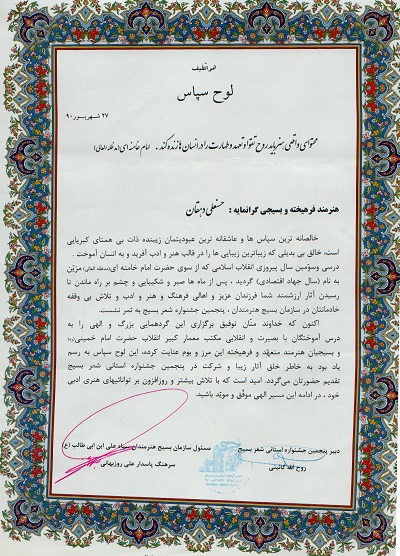 هو اللطیف
لوح سپاس
۲۷ شهریور ۹۰
محتوای واقعی هنر باید روح تقوا و تعهد و طهارت را در انسان ها زنده کند. امام خامنه ای (مد ظله العالی)
هنرمند فرهیخته و بسیجی گرانمایه : حسنعلی دهقان
خالصانه ترین سپاس ها و عاشقانه ترین عبودیتمان زیبنده ذات بی همتای کبریایی
است، خالق بی بدیلی که زیباترین زیبایی ها را در قالب هنر و ادب آفرید و به انسان آموخت .
درسی وسوّمین سال پیروزی انقلاب اسلامی که از سوی حضرت امام خامنه ای (مدظله العالی) مزیّن
به نام (سال جهاد اقتصادی) گردید ، پس از ماه ها صبر و شکیبایی و چشم بر راه ماندن تا
رسیدن آثار ارزشمند شما فرزندان عزیز و اهالی فرهنگ و هنر و ادب و تلاش بی وقفه
خادمانتان در سازمان بسیج هنرمندان ، پنجمین جشنواره شعر بسیج به ثمر نشست.
اکنون که خداوند منّان توفیق برگزاری این گردهمایی بزرگ و الهی را به
درس آموختگان با بصرت و انقلابی مکتب معمار کبیر انقلاب حضرت امام خمینی(ره)
و بسیجیان هنرمند متعهّد و فرهیخته این مرز و بوم عنایت کرده، این لوح سپاس به رسم
یاد بود به خاطر خلق آثار زیبا و شرکت در پنجمین جشنواره استانی شعر بسیج
تقدیم حضورتان می‌گردد. امید است که با تلاش بیشتر و روزافزون بر توانائیهای هنری ادبی
خود ، در ادامه این مسیر الهی موفّق و مویّد باشید.
دبیر پنجمین جشنواره استانی شعر بسیج
روح الله گائینی
مسئول سازمان بسیج هنرمندان سپاه علی ابن ابی طالب (ع)
سرهنگ پاسدار علی روزبهانی